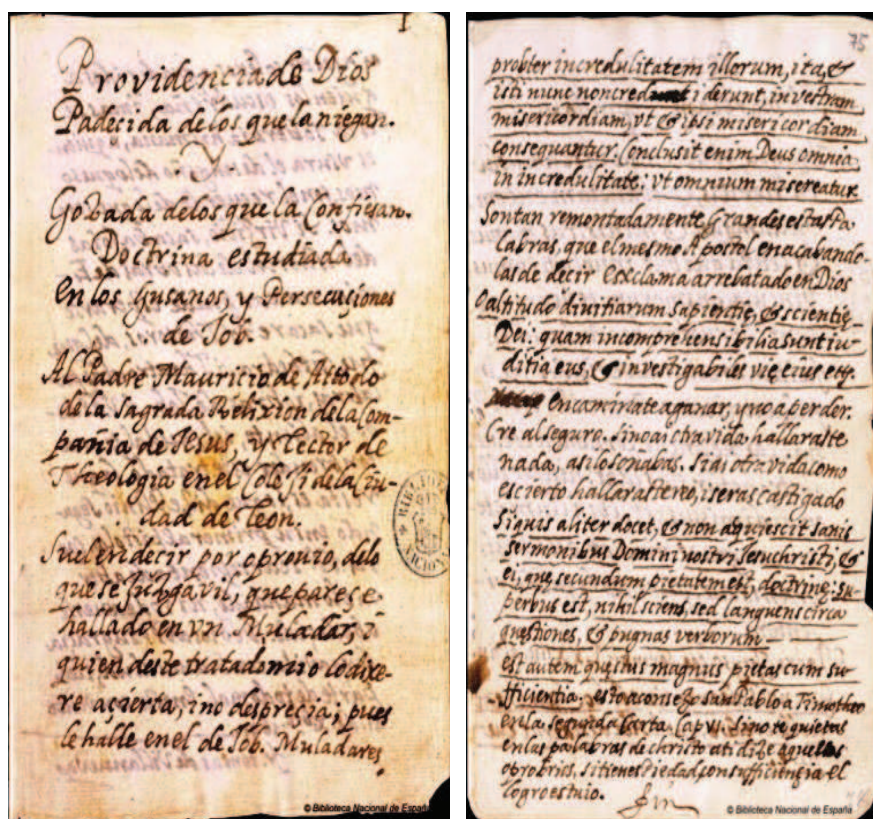 1
Providencia de Dios
Padecida de los que la niegan.
Y
Gozada delos que la Confiesan.
Doctrina estudiada
en los Gusanos, y Persecusiones
de Job.
Al Padre Mauricio de Attodo
de la Sagrada Relixion de la Com-
pañia de Jesus, y Lector de
Theologia en el Colejio de la Ciu-
dad de Leon.
Suelen decir por oprouio, delo
que se juzga vil, que pareçe
hallado en vn Muladar, i
quien deste tratado mio lo dixe-
re açierta, i no despreçia; pues
le halle en el de Job. Muladares
© Biblioteca Nacional de España
75
probter incredulitatem illorum, ita, &
isti nunc non crediderunt, in vestram
misericordiam, vt & ibsi misericordiam
consequantur. Conclusit enim Deus omnia
in incredulitate: vt omnium misereatur
Son tan remontadamente Grandes estas Pa
labras, que el mesmo Apostol en acabando-
las de decir exclama arrebatado en Dios
O altitudo divitiarum sapientię, & scientię
Dei: quam incomprehensibilia sunt iu-
ditia eus, & investigabiles vię eius etc.
encaminate a ganar, y no a perder.
Cre al seguro. si no ai otra vida hallaraste
nada, asi lo soñabas. si ai otra vida como
es cierto hallaraste reo, i seras castigado
Siquis aliter docet, & non aqujescit sanis
sermonibus Domini nostri Jesuchristi, &
ei, quę secundum pietatem est, doctrinę: su-
perbus est, nihil sciens, sed languens circa
quęstiones, & pugnas verborum
est autem quęstus magnus pietas cum su-
fficientia. esto aconsejo san Pablo a Timotheo
en la segunda Carta. Cap VI. Si no te quietas
en las palabras de christo a ti dize aquellos
oprobrios. si tienes piedad, con sufficiençia el
logro es tuio.
Fin
© Biblioteca Nacional de España